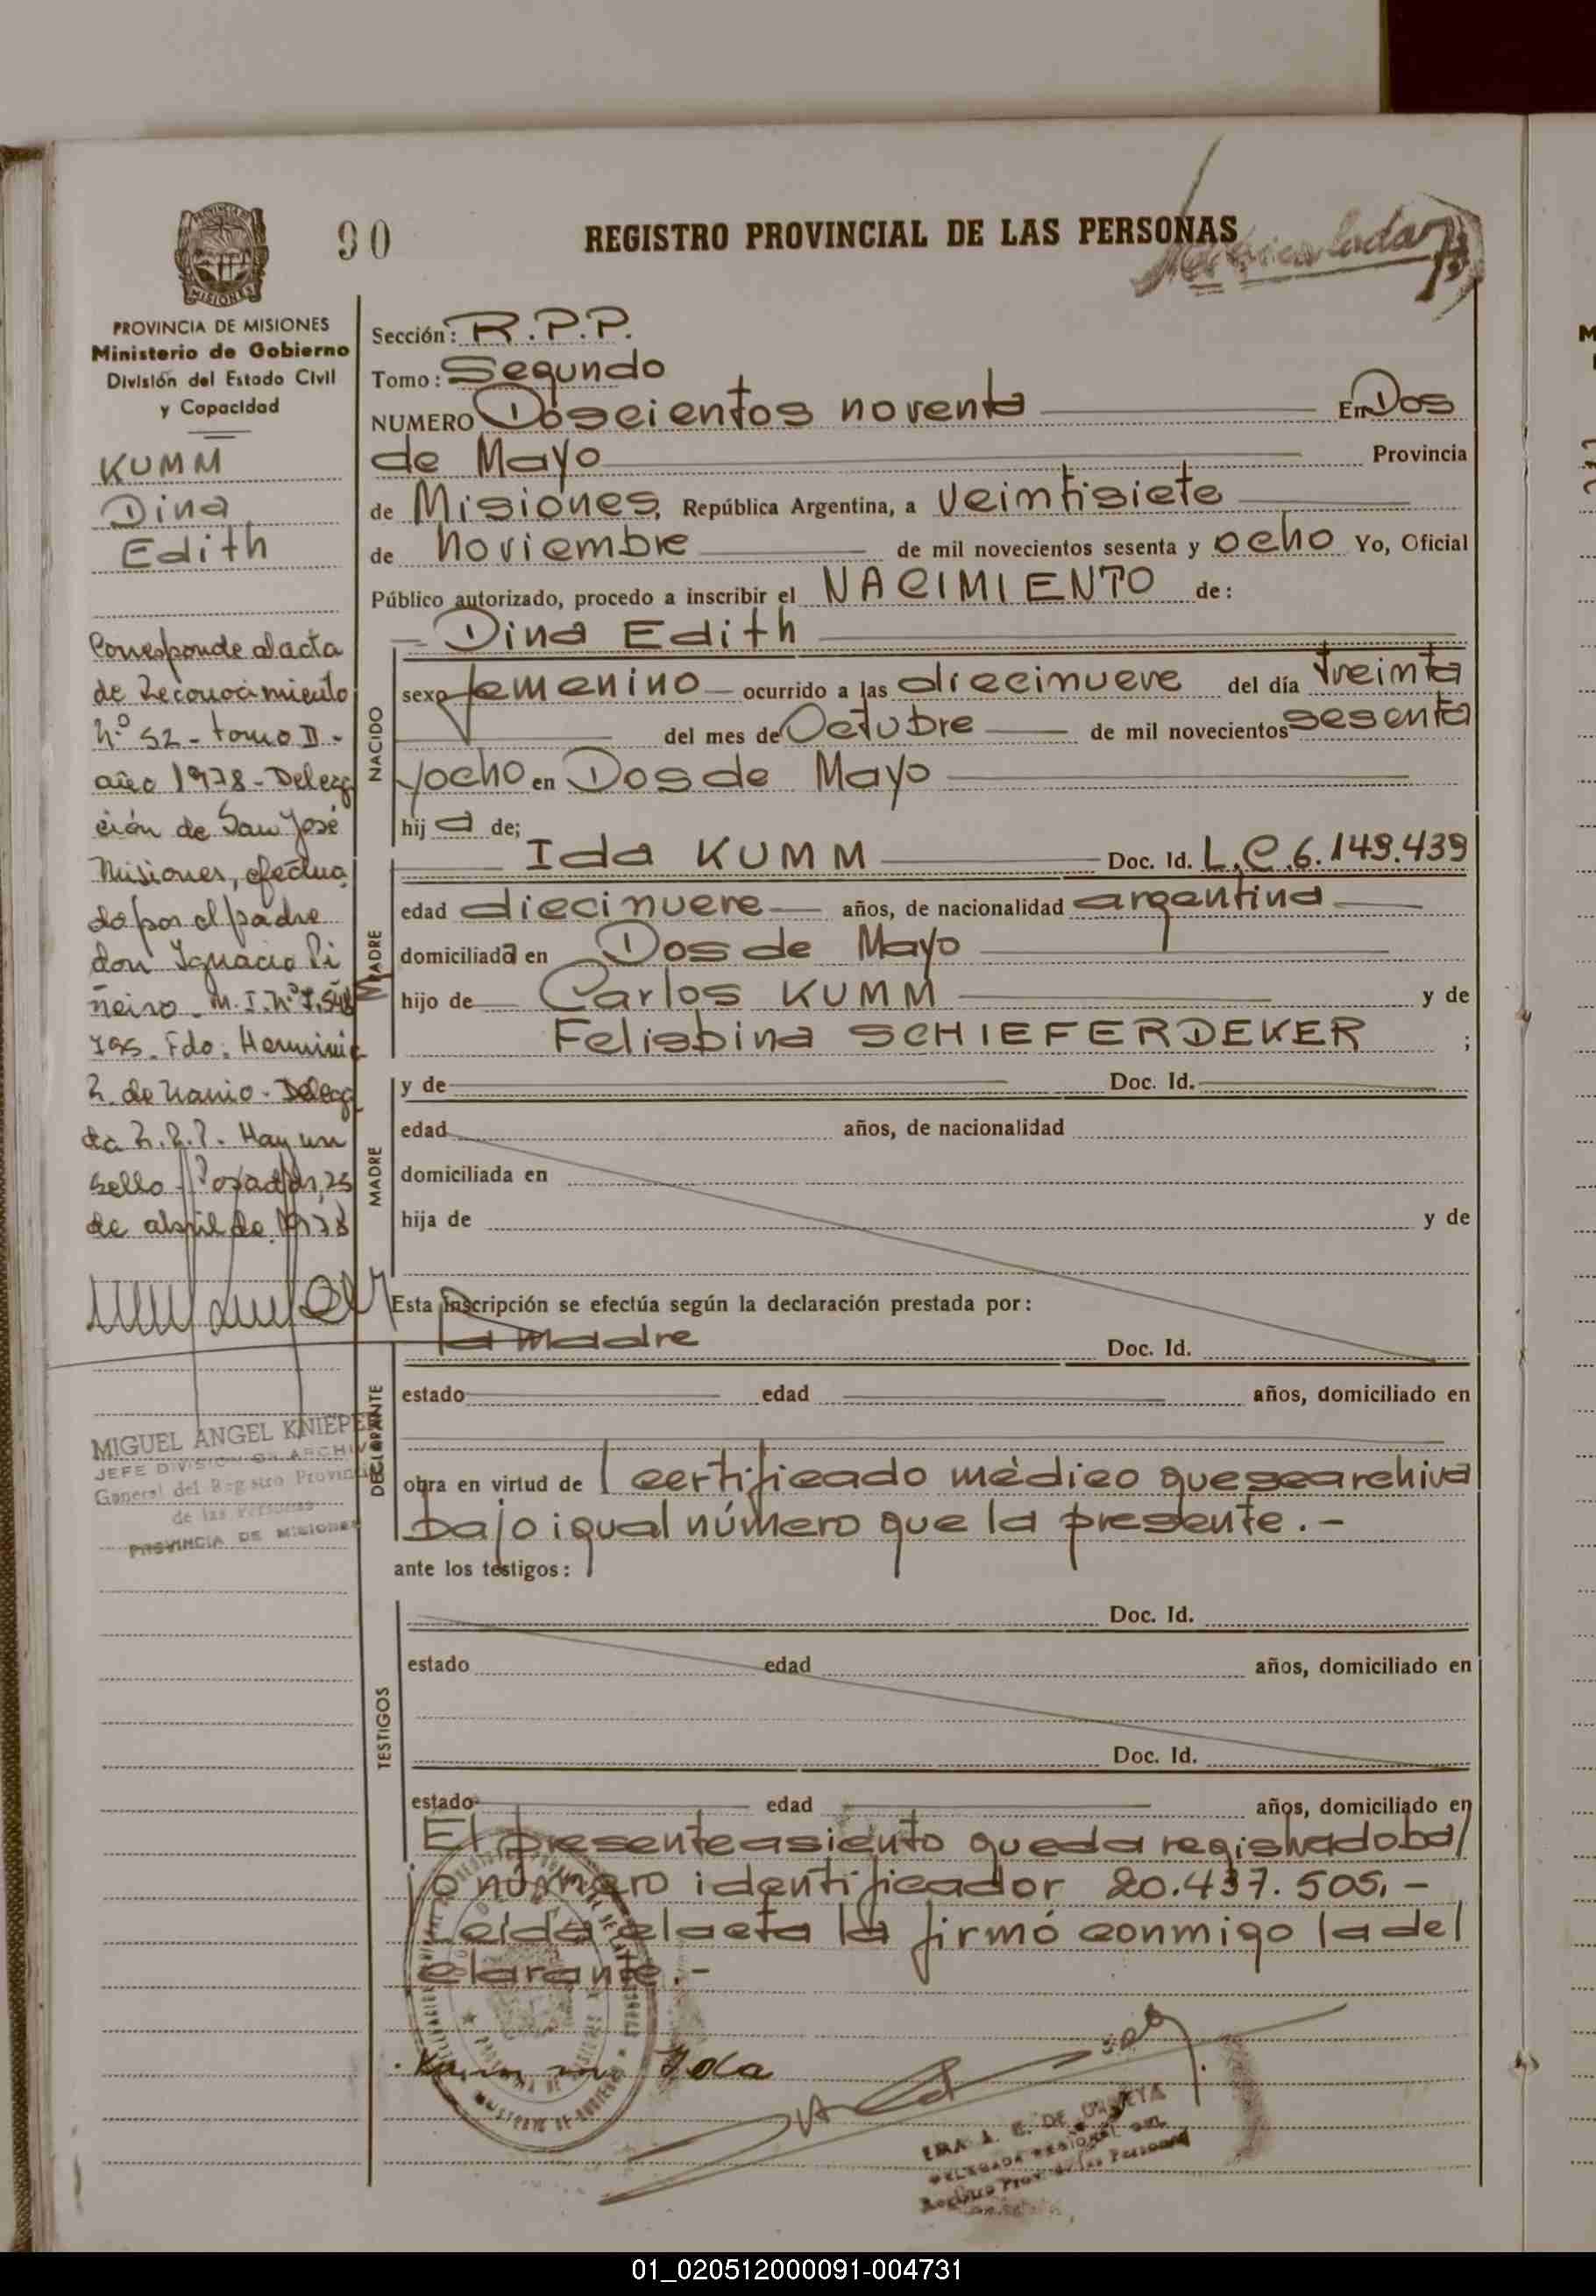 90
REGISTRO PROVINCIAL DE LAS PERSONAS
Matriculada
MISIONES
PROVINCIA DE MISIONES
Ministerio de Gobierno
División del Estado Civil
y Capacidad
KUMM
Dina
Edith
Corresponde al acta
de Reconocimiento
Nº 52 - tomo II -
año 1978 - Delega
ción de San José
Misiones, efectua
do por el padre
don Ignacio Pi
ñeiro - M.I. Nº 7.548
Fdo: Herminia
R. de - Delega
da R.P.P. Hay un
sello - Posadas, 25
de abril de 1978
MIGUEL ANGEL KNIEPER
JEFE DIVISION ARCHIVO
General del Registro Provincial
de las Personas
PROVINCIA DE MISIONES
Sección: R.P.P.
Tomo: Segundo
NUMERO Doscientos noventa En Dos
de Mayo Provincia
de Misiones, República Argentina, a veintisiete
de noviembre de mil novecientos sesenta y ocho Yo, Oficial
Público autorizado, procedo a inscribir el NACIMIENTO de:
Dina Edith
NACIDO
sexo femenino ocurrido a las diecinueve del día treinta
del mes de Octubre de mil novecientos sesenta
y ocho en Dos de Mayo
hij a de;
Ida KUMM Doc. Id. L.C. 6.149.439
MADRE
edad diecinueve años, de nacionalidad argentina
domiciliada en Dos de Mayo
hijo de Carlos KUMM y de
Felisbina SCHIEFERDEKER ;
y de Doc. Id.
MADRE
edad años, de nacionalidad
domiciliada en
hija de y de
Esta inscripción se efectúa según la declaración prestada por:
la madre Doc. Id.
DECLARANTE
estado edad años, domiciliado en
obra en virtud de 1 certificado médico que se archiva
bajo igual número que la presente.-
ante los testigos:
Doc. Id.
TESTIGOS
estado edad años, domiciliado en
Doc. Id.
estado edad años, domiciliado en
El presente asiento queda registrado ba/
jo número identificador 20.437.505.-
Leída el acta la firmó conmigo la del
clarante.-
Ida
DE
DELEGADA REGIONAL
Registro Prov. de las Personas
01_020512000091-004731